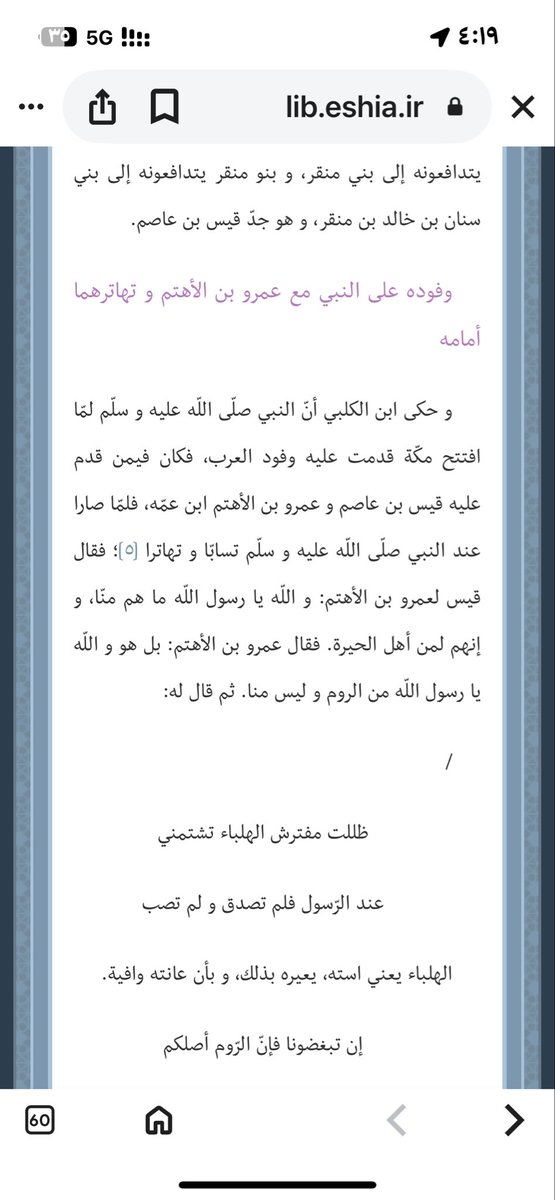 ٣٥ 5G ٤:١٩
lib.eshia.ir
يتدافعونه إلى بني منقر، و بنو منقر يتدافعونه إلى بني
سنان بن خالد بن منقر، و هو جدّ قيس بن عاصم.
وفوده على النبي مع عمرو بن الأهتم و تهاترهما
أمامه
و حكى ابن الكلبي أنّ النبي صلّى اللّه عليه و سلّم لمّا
افتتح مكّة قدمت عليه وفود العرب، فكان فيمن قدم
عليه قيس بن عاصم و عمرو بن الأهتم ابن عمّه، فلمّا صارا
عند النبي صلّى اللّه عليه و سلّم تسابّا و تهاترا [٥]؛ فقال
قيس لعمرو بن الأهتم: و اللّه يا رسول اللّه ما هم منّا، و
إنهم لمن أهل الحيرة. فقال عمرو بن الأهتم: بل هو و اللّه
يا رسول اللّه من الروم و ليس منا. ثم قال له:
/
ظللت مفترش الهلباء تشتمني
عند الرّسول فلم تصدق و لم تصب
الهلباء يعني استه، يعيره بذلك، و بأن عانته وافية.
إن تبغضونا فإنّ الرّوم أصلكم
60